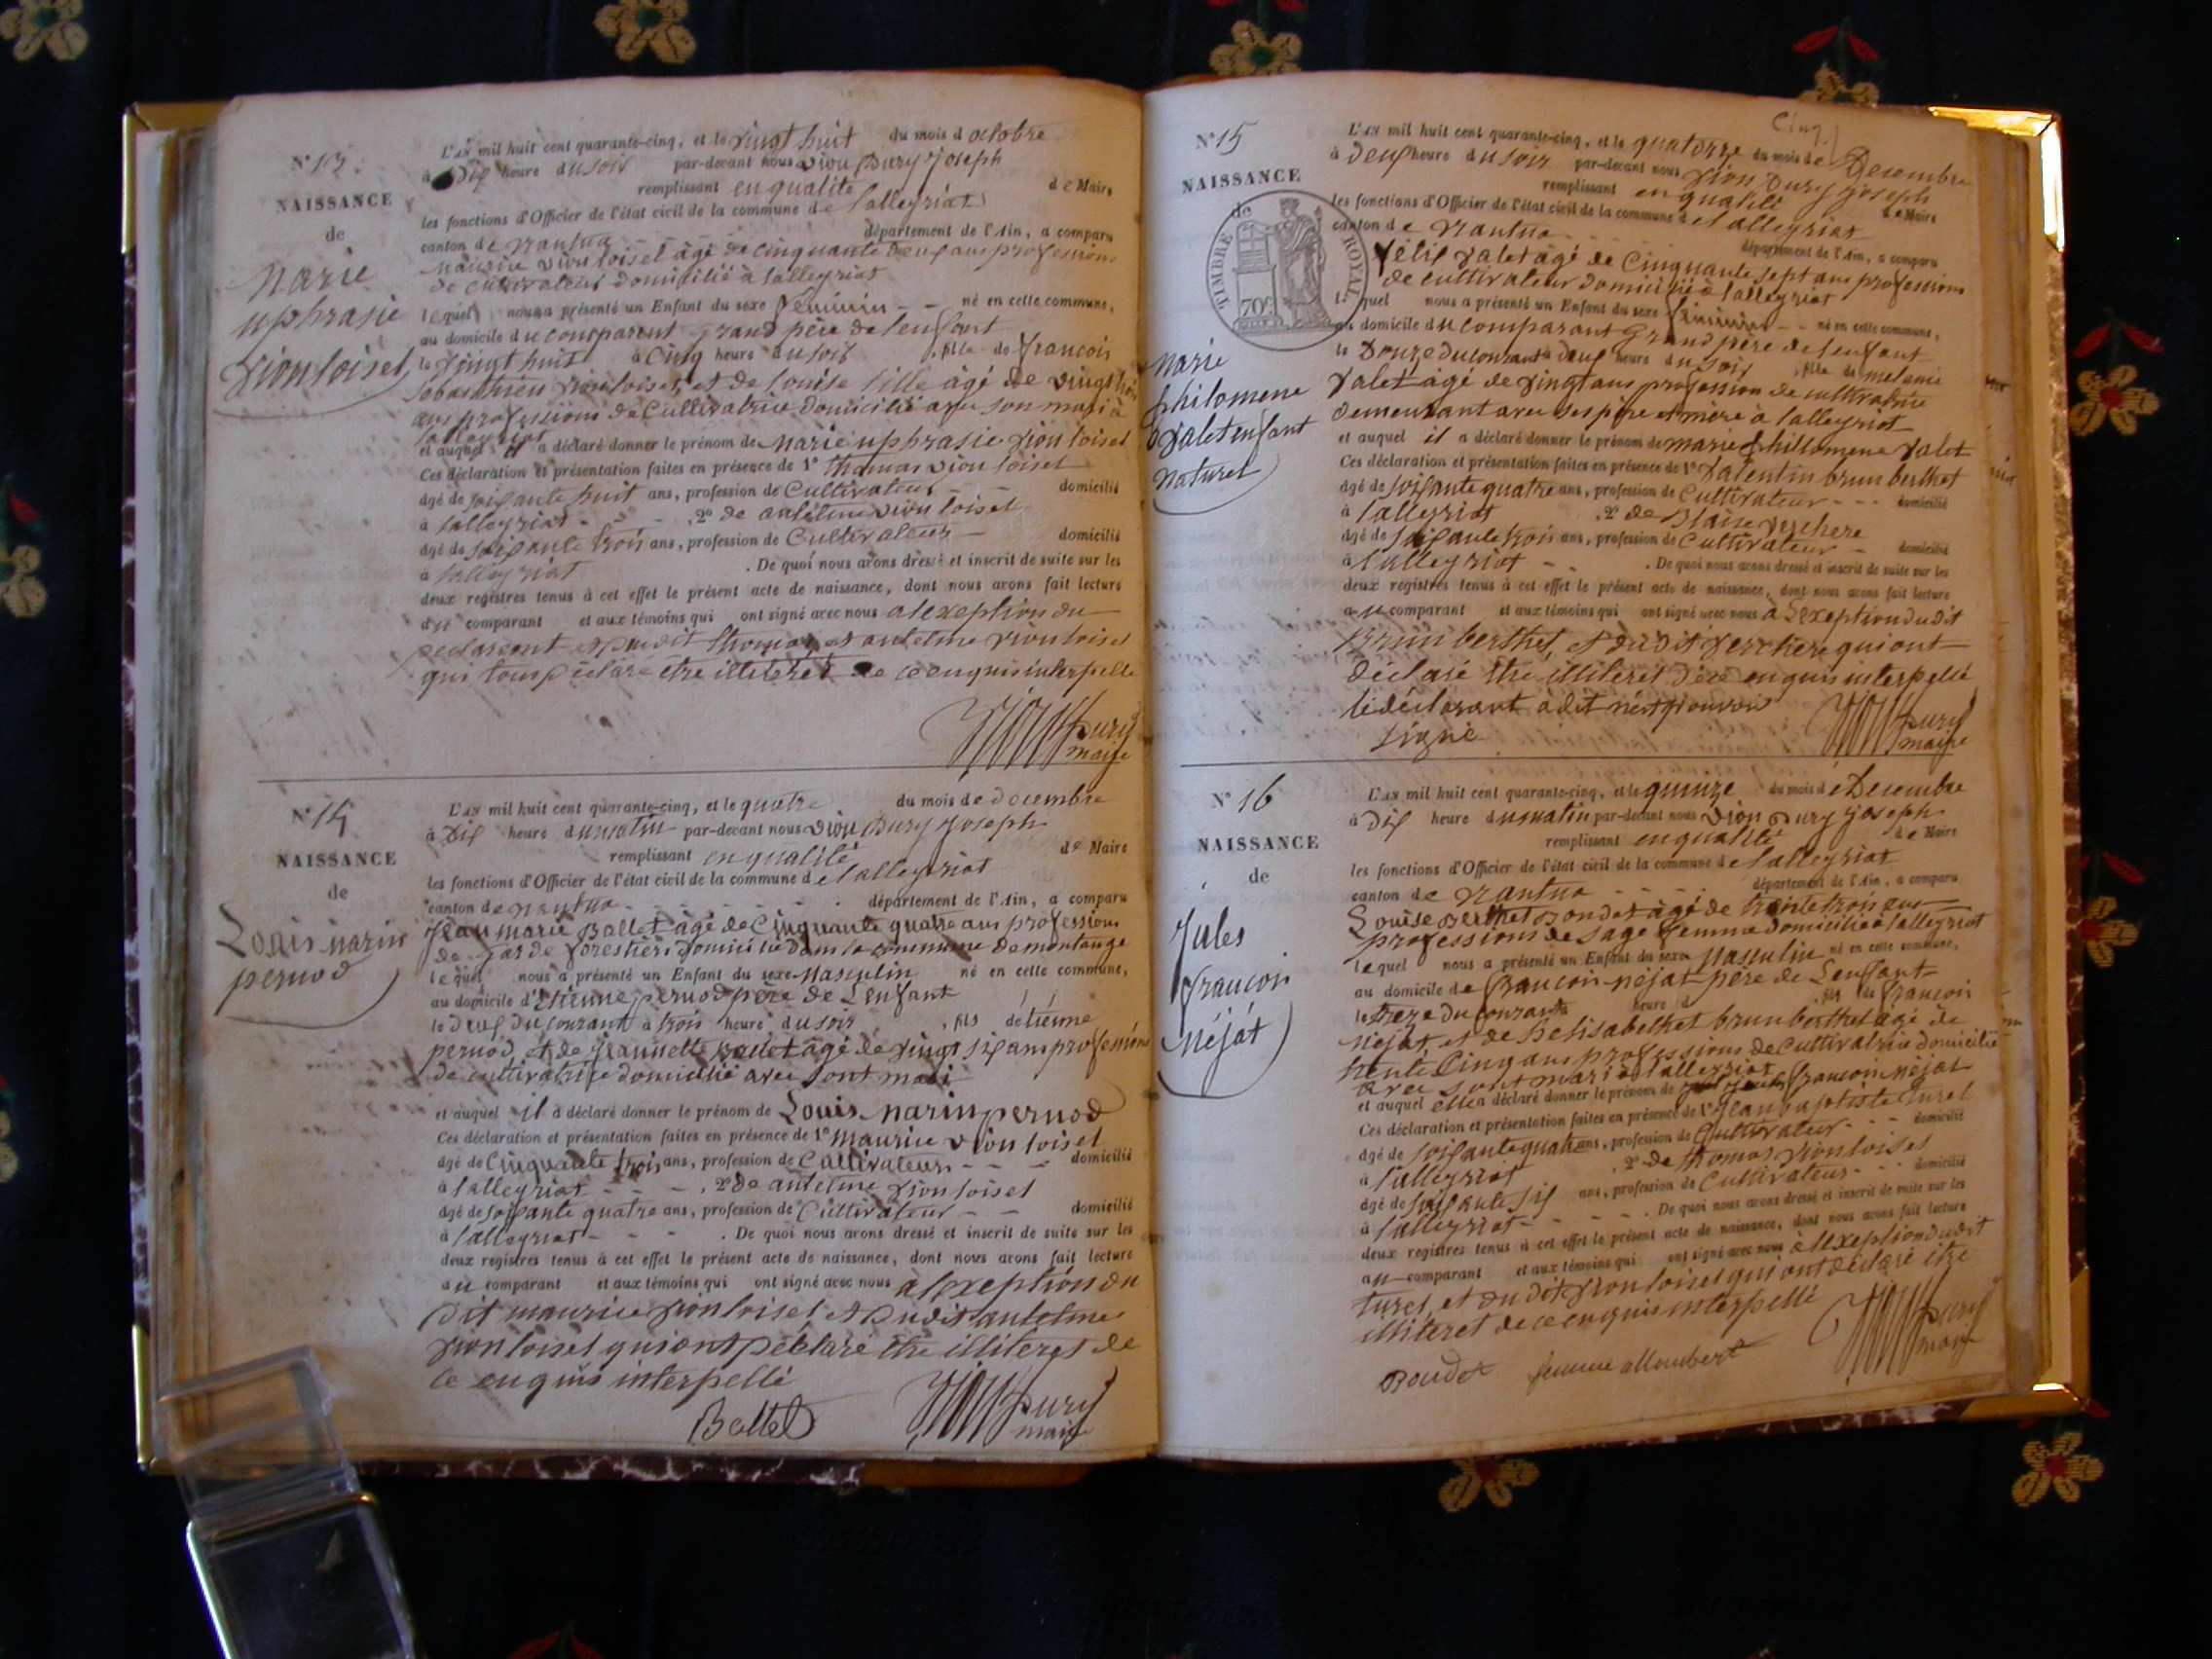 N° 13.
NAISSANCE
de
Marie
uphrasie
Vionloisel
L'AN mil huit cent quarante-cinq, et le vingt huit du mois d octobre
à Dix heure du soir par-devant nous Vion Dury Joseph
remplissant en qualité de Maire
les fonctions d'Officier de l'état civil de la commune de lalleyriat
canton de nantua département de l'Ain, a comparu
Maurice vion loisel âgé de cinquante deux ans professions
de cultivateur domicilié à lalleyriat
lequel nous a présenté un Enfant du sexe feminin - - né en cette commune,
au domicile du comparent grand père de lenfant
le vingt huit à cinq heure du soir , fille de francois
vionloisel, et de louise âgé de vingt
ans professions de Cultivatrice domicilié avec son mari à
lalleyriat
et auquel il a déclaré donner le prénom de Marie uphrasie vion loisel
Ces déclaration et présentation faites en présence de 1° thomas vion loisel
âgé de soixante huit ans, profession de Cultivateur - - domicilié
à lalleyriat - - - , 2° de antelme vion loisel
âgé de soixante trois ans, profession de Cultivateur - domicilié
à lalleyriat . De quoi nous avons dressé et inscrit de suite sur les
deux registres tenus à cet effet le présent acte de naissance, dont nous avons fait lecture
au comparant et aux témoins qui ont signé avec nous a lexeption du
declarant et dudit thomas et antelme vion loisel
qui tous déclare etre illiteret de ce enquis interpelle
Vion Dury
maire
N° 14
NAISSANCE
de
Louis marin
pernod
L'AN mil huit cent quarante-cinq, et le quatre du mois de decembre
à Dix heure du matin par-devant nous Vion Dury Joseph
remplissant en qualité de Maire
les fonctions d'Officier de l'état civil de la commune de lalleyriat
canton de nantua - - - - - département de l'Ain, a comparu
Jean marie Ballet âgé de Cinquante quatre ans professions
de gar de forestier domicilié dans la commune de montange
lequel nous a présenté un Enfant du sexe Masculin né en cette commune,
au domicile d'Etienne pernod père de Lenfant
le deux du courant à trois heure du soir , fils de tiénne
pernod, et de Jeannette Ballet âgé de vingt six ans professions
de cultivatrice domicilié avec sont mari
et auquel il a déclaré donner le prénom de Louis Marin pernod
Ces déclaration et présentation faites en présence de 1° Maurice vion loisel
âgé de Cinquante trois ans, profession de Cultivateurs - - - domicilié
à lalleyriat - - - , 2° de antelme vion loisel
âgé de soixante quatre ans, profession de Cultivateur - - domicilié
à lalleyriat - - - . De quoi nous avons dressé et inscrit de suite sur les
deux registres tenus à cet effet le présent acte de naissance, dont nous avons fait lecture
au comparant et aux témoins qui ont signé avec nous à lexeption du
dit maurice vion loisel et dudit antelme
vion loisel qui ont déclaré être illiteret de
ce enquis interpellé
Ballet
Vion Dury
maire
Cinq.
N° 15
NAISSANCE
de
TIMBRE ROYAL
70c
Marie
philomene
Valet enfant
naturel
L'AN mil huit cent quarante-cinq, et le quatorze du mois de Decembre
à deux heure du soir par-devant nous Vion Dury Joseph
remplissant en qualité de Maire
les fonctions d'Officier de l'état civil de la commune de lalleyriat
canton de nantua - - département de l'Ain, a comparu
félix valet âgé de Cinquante sept ans professions
de cultivateur domicilié à lalleyriat
Lequel nous a présenté un Enfant du sexe feminin - - né en cette commune,
au domicile du comparant grand père de lenfant
le Douze du courant à deux heure du soir , fille de melanie
valet âgé de vingt ans profession de cultivatrice
demeurant avec ses père et mère à lalleyriat
et auquel il a déclaré donner le prénom de marie phillomene valet
Ces déclaration et présentation faites en présence de 1° Valentin brun berthet
âgé de soixante quatre ans, profession de Cultivateur - - - domicilié
à lalleyriat , 2° de Blaise verchere
âgé de soixante trois ans, profession de Cultivateur - domicilié
à lalleyriat - - . De quoi nous avons dressé et inscrit de suite sur les
deux registres tenus à cet effet le présent acte de naissance, dont nous avons fait lecture
au comparant et aux témoins qui ont signé avec nous à Lexeption dudit
brun berthet, et dudit verchere qui ont
déclaré être illiteret de ce enquis interpellé
le déclarant a dit
signé
Vion Dury
maire
N° 16
NAISSANCE
de
Jules
françois
Néjat
L'AN mil huit cent quarante-cinq, et le quinze du mois de Decembre
à Dix heure du matin par-devant nous Vion Dury Joseph
remplissant en qualité de Maire
les fonctions d'Officier de l'état civil de la commune de lalleyriat
canton de Nantua - - - - département de l'Ain, a comparu
Louise Berthet Bondet âgé de trente trois ans
professions de sage femme domicilié à lalleyriat
lequel nous a présenté un Enfant du sexe Masculin né en cette commune,
au domicile de francoin néjat père de Lenfant
le treze du courant à heure d , fils de francoin
Néjat, et de Belisabelthet brun berthet âgé de
trente Cinq ans professions de Cultivatrice domicilié
avec sont mari à lalleyriat
et auquel elle a déclaré donner le prénom de Jules francoin Néjat
Ces déclaration et présentation faites en présence de 1° Jean baptiste turel
âgé de soixante quatre ans, profession de Cultivateur - - - domicilié
à lalleyriat , 2° de thomas vionloisel
âgé de soixante six ans, profession de Cultivateur - - - domicilié
à lalleyriat - - - - . De quoi nous avons dressé et inscrit de suite sur les
deux registres tenus à cet effet le présent acte de naissance, dont nous avons fait lecture
au comparant et aux témoins qui ont signé avec nous à lexeption dudit
turel, et du dit vionloisel qui ont déclaré être
illiteret de ce enquis interpellé
Vion Dury
maire
Bondet femme allombert